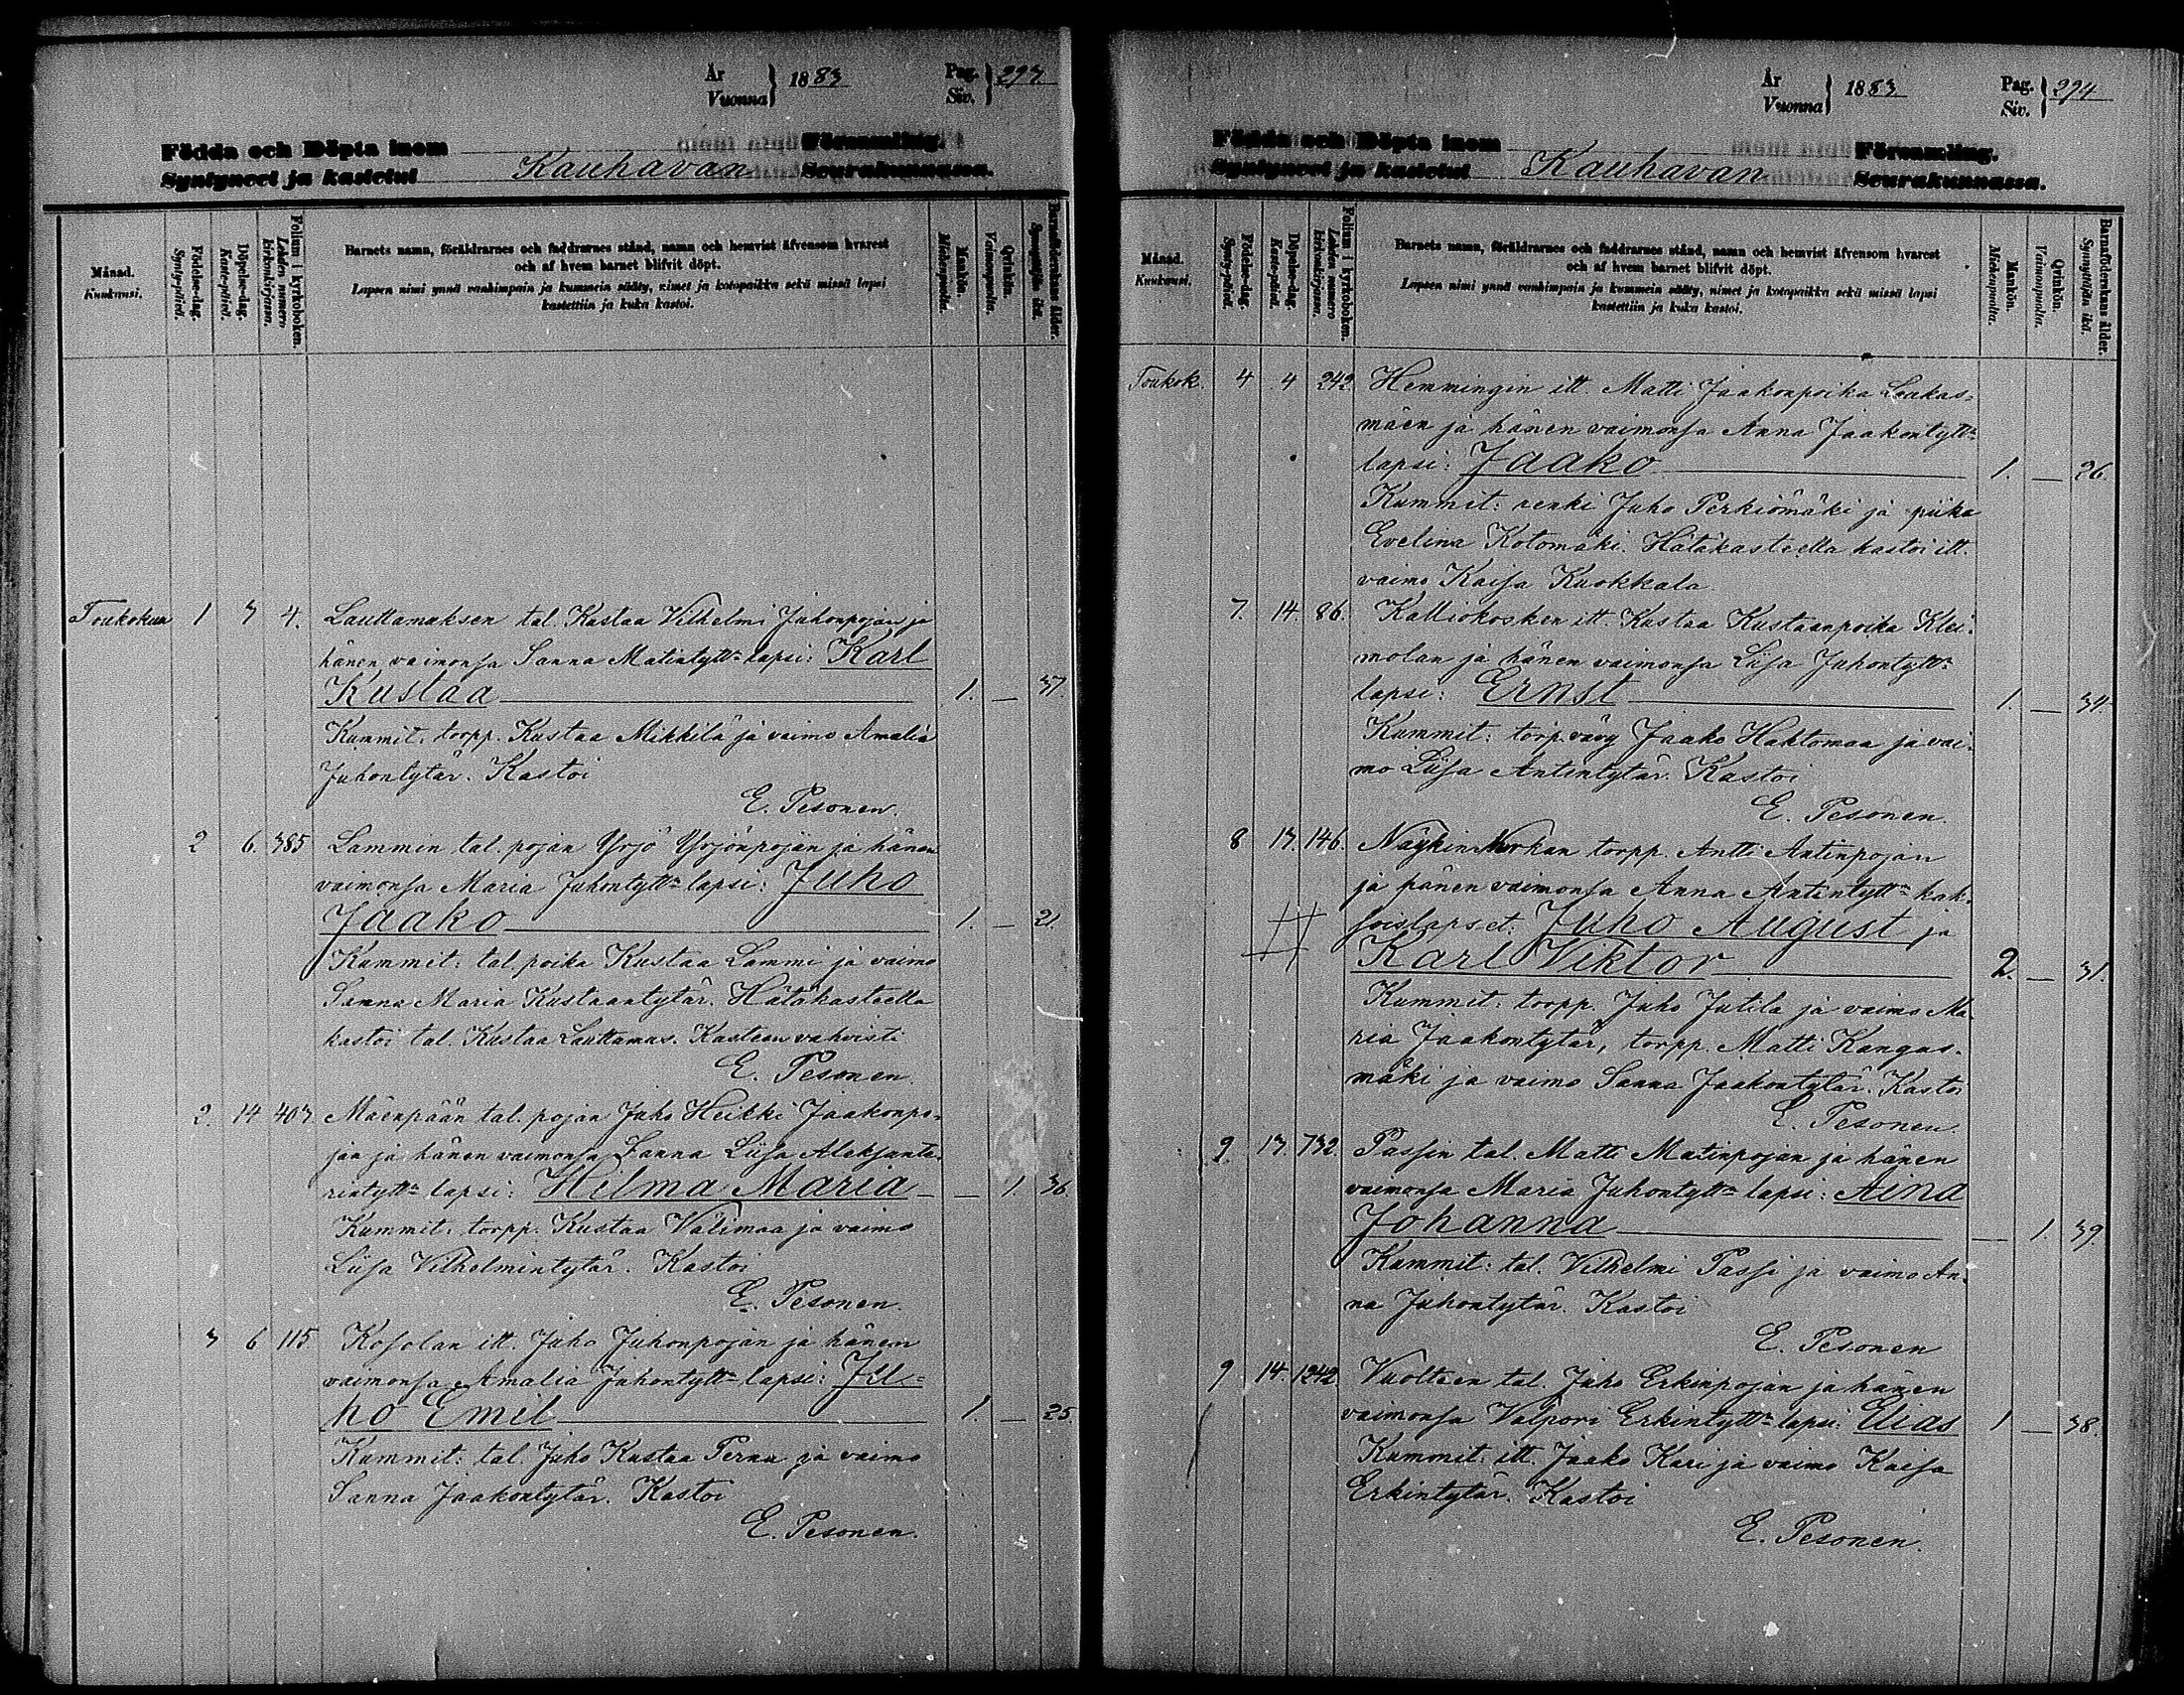 År
Vuonna } 1883
Pag.
Siv. } 293
Födda och Döpta inom Församling.
Syntyneet ja kastetut Kauhavan Seurakunnassa.
Månad.
Kuukausi.
Födelse-dag.
Synty-päivä.
Döpelse-dag.
Kaste-päivä.
Folium i kyrkoboken.
Lehden numero kirkonkirjassa.
Barnets namn, föräldrarnes och faddrarnes stånd, namn och hemvist äfvensom hvarest
och af hvem barnet blifvit döpt.
Lapsen nimi ynnä vanhimpain ja kummein sääty, nimet ja kotopaikka sekä missä lapsi
kastettiin ja kuka kastoi.
Mankön.
Miehenpuolta.
Qvinkön.
Vaimonpuolta.
Barnaföderskans ålder.
Synnyttäjän ikä.
Toukokuu 1 3 4. Lauttamuksen tal. Kustaa Vilhelmi Juhonpojan ja
hänen vaimonsa Sanna Matintytt:n lapsi: Karl
Kustaa 1. — 37.
Kummit: torpp. Kustaa Mikkilä ja vaimo Amalia
Juhontytär. Kastoi
E. Pesonen.
2 6. 385 Lammin tal. pojan Yrjö Yrjönpojan ja hänen
vaimonsa Maria Juhontytt:n lapsi: Juho
Jaako 1. — 21.
Kummit: tal. poika Kustaa Lammi ja vaimo
Sanna Maria Kustaantytär. Hätäkasteella
kastoi tal. Kustaa Lauttamus. Kasteen vahvisti
E. Pesonen.
2. 14 403. Mäenpään tal. pojan Juho Heikki Jaakonpo-
jan ja hänen vaimonsa Sanna Liisa Aleksante-
rintytt:n lapsi: Hilma Maria — — 1. 36.
Kummit: torpp. Kustaa Välimaa ja vaimo
Liisa Vilhelmintytär. Kastoi
E. Pesonen.
3 6 115. Kosolan itt. Juho Juhonpojan ja hänen
vaimonsa Amalia Juhontytt:n lapsi: Ju-
ho Emil 1. — 25.
Kummit: tal. Juho Kustaa Pernu ja vaimo
Sanna Jaakontytär. Kastoi
E. Pesonen.
År
Vuonna } 1883
Pag.
Siv. } 294
Födda och Döpta inom Församling.
Syntyneet ja kastetut Kauhavan Seurakunnassa.
Månad.
Kuukausi.
Födelse-dag.
Synty-päivä.
Döpelse-dag.
Kaste-päivä.
Folium i kyrkoboken.
Lehden numero kirkonkirjassa.
Barnets namn, föräldrarnes och faddrarnes stånd, namn och hemvist äfvensom hvarest
och af hvem barnet blifvit döpt.
Lapsen nimi ynnä vanhimpain ja kummein sääty, nimet ja kotopaikka sekä missä lapsi
kastettiin ja kuka kastoi.
Mankön.
Miehenpuolta.
Qvinkön.
Vaimonpuolta.
Barnaföderskans ålder.
Synnyttäjän ikä.
Toukok. 4 4 242. Hemmingin itt. Matti Jaakonpoika Lukas-
mäen ja hänen vaimonsa Anna Jaakontytt:n
lapsi: Jaako 1. — 26.
Kummit: renki Juho Perkiömäki ja piika
Evelina Kotomäki. Hätäkasteella kastoi itt.
vaimo Kaisa Kuokkala
7. 14. 86. Kalliokosken itt. Kustaa Kustaanpoika Klei-
molan ja hänen vaimonsa Liisa Juhontytt:n
lapsi: Ernst 1. — 34.
Kummit: torp. vävy Jaako Hahtomaa ja vai-
mo Liisa Antintytär. Kastoi
E. Pesonen.
8 13. 146. Näykin torpp. Antti Antinpojan
ja hänen vaimonsa Anna Antintytt:n kak-
soislapset: Juho August ja
Karl Viktor 2. — 31.
Kummit: torpp. Juho Jutila ja vaimo Ma-
ria Jaakontytär, torpp. Matti Kangas-
mäki ja vaimo Sanna Jaakontytär. Kastoi
E. Pesonen.
9. 13. 732. Passin tal. Matti Matinpojan ja hänen
vaimonsa Maria Juhontytt:n lapsi: Aina
Johanna — 1. 39.
Kummit: tal. Vilhelmi Passi ja vaimo An-
na Juhontytär. Kastoi
E. Pesonen
9 14. 1242. Vuolteen tal. Juho Erkinpojan ja hänen
vaimonsa Valpori Erkintytt:n lapsi: Elias 1 — 38.
Kummit: itt. Jaako Kari ja vaimo Kaisa
Erkintytär. Kastoi
E. Pesonen.